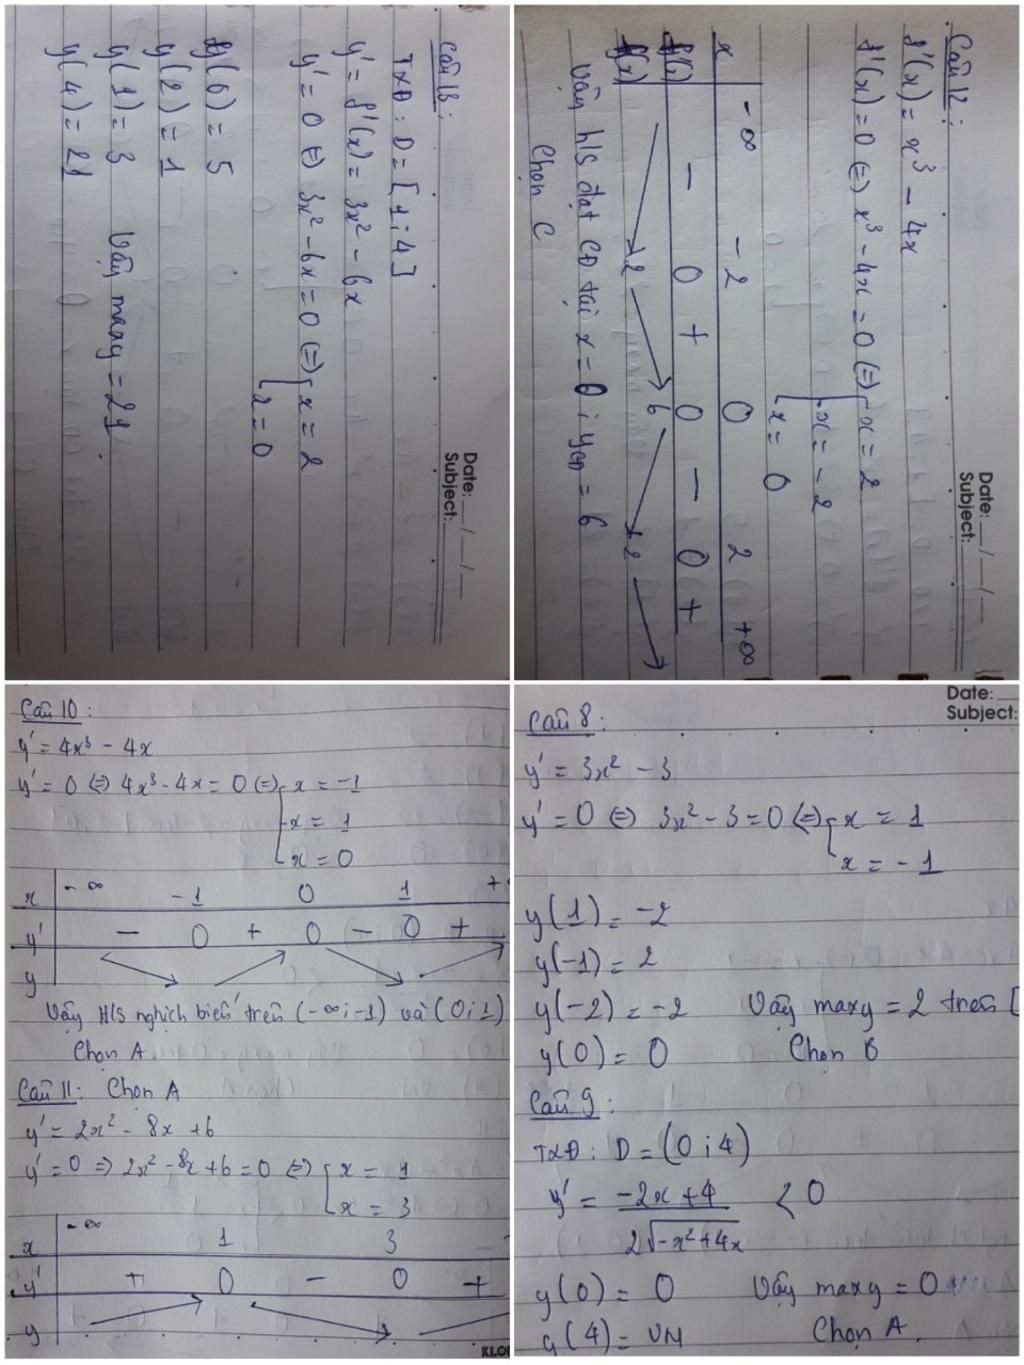 Date: __/__/__
Subject:
Câu 13:
TXĐ: D = [1;4]
y' = f'(x) = 3x² - 6x
y' = 0 ⇔ 3x² - 6x = 0 ⇔ x = 2
x = 0
y(0) = 5
y(2) = 1
y(1) = 3 Vậy max y = 21.
y(4) = 21
Date: __/__/__
Subject:
Câu 12:
f'(x) = x³ - 4x
f'(x) = 0 ⇔ x³ - 4x = 0 ⇔ x = 2
x = -2
x = 0
x -∞ -2 0 2 +∞
f'(x) - 0 + 0 - 0 +
f(x) 2 6 2
Vậy h/s đạt CĐ tại x = 0; yCĐ = 6
Chọn C
Câu 10:
y' = 4x³ - 4x
y' = 0 ⇔ 4x³ - 4x = 0 ⇔ x = -1
x = 1
x = 0
x -∞ -1 0 1 +
y' - 0 + 0 - 0 +
y
Vậy H/S nghịch biến trên (-∞;-1) và (0;1)
Chọn A.
Câu 11: Chọn A
y' = 2x² - 8x + 6
y' = 0 ⇒ 2x² - 8x + 6 = 0 ⇔ x = 1
x = 3
x -∞ 1 3
y' + 0 - 0 +
y
KLO
Date:
Subject:
Câu 8:
y' = 3x² - 3
y' = 0 ⇔ 3x² - 3 = 0 ⇔ x = 1
x = -1
y(1) = -2
y(-1) = 2
y(-2) = -2 Vậy max y = 2 trên [
y(0) = 0 Chọn B
Câu 9:
TXĐ: D = (0;4)
y' = (-2x+4)/(2√(-x²+4x)) < 0
y(0) = 0 Vậy max y = 0
y(4) = VN Chọn A.